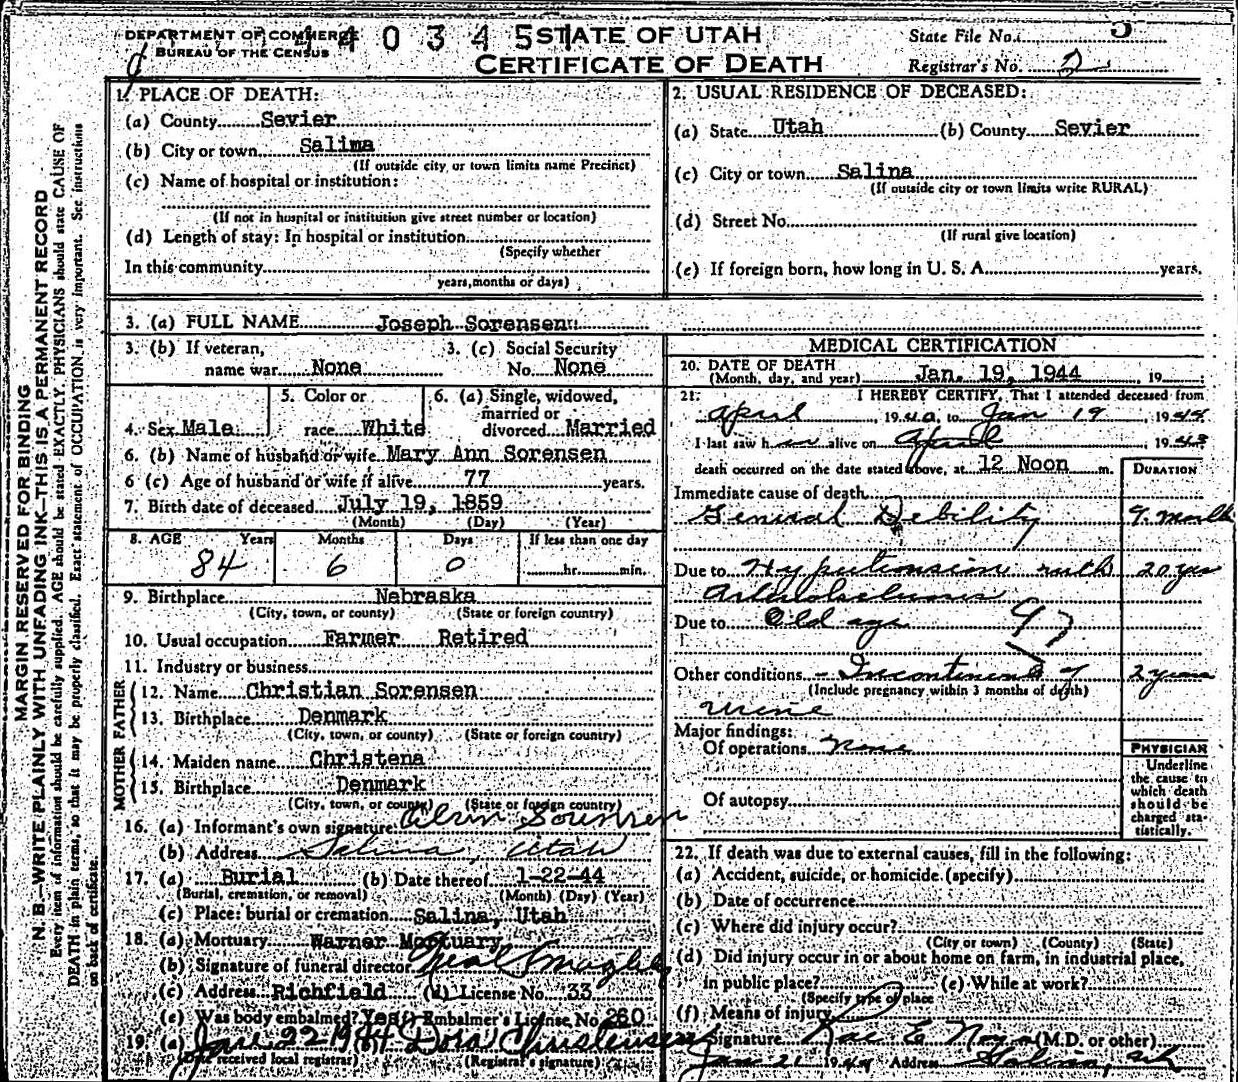 DEPARTMENT OF COMMERCE
BUREAU OF THE CENSUS
4 4 0 3 4 5 1
STATE OF UTAH
CERTIFICATE OF DEATH
State File No. 3
Registrar's No. 2
MARGIN RESERVED FOR BINDING
N. B.—WRITE PLAINLY WITH UNFADING INK—THIS IS A PERMANENT RECORD
Every item of information should be carefully supplied. AGE should be stated EXACTLY. PHYSICIANS should state CAUSE OF
DEATH in plain terms, so that it may be properly classified. Exact statement of OCCUPATION is very important. See instructions
on back of certificate.
1. PLACE OF DEATH:
(a) County Sevier
(b) City or town Salina
(If outside city or town limits name Precinct)
(c) Name of hospital or institution:
(If not in hospital or institution give street number or location)
(d) Length of stay: In hospital or institution
(Specify whether
In this community
years, months or days)
2. USUAL RESIDENCE OF DECEASED:
(a) State Utah (b) County Sevier
(c) City or town Salina
(If outside city or town limits write RURAL)
(d) Street No.
(If rural give location)
(e) If foreign born, how long in U. S. A. years.
3. (a) FULL NAME Joseph Sorensen
3. (b) If veteran, name war None
3. (c) Social Security No. None
4. Sex Male
5. Color or race White
6. (a) Single, widowed, married or divorced Married
6. (b) Name of husband or wife Mary Ann Sorensen
6 (c) Age of husband or wife if alive 77 years.
7. Birth date of deceased July 19, 1859
(Month) (Day) (Year)
8. AGE Years Months Days If less than one day
84 6 0 hr. min.
9. Birthplace Nebraska
(City, town, or county) (State or foreign country)
10. Usual occupation Farmer Retired
11. Industry or business
FATHER
12. Name Christian Sorensen
13. Birthplace Denmark
(City, town, or county) (State or foreign country)
MOTHER
14. Maiden name Christena
15. Birthplace Denmark
(City, town, or county) (State or foreign country)
16. (a) Informant's own signature Sorensen
(b) Address Salina, Utah
17. (a) Burial (b) Date thereof 1-22-44
(Burial, cremation, or removal) (Month) (Day) (Year)
(c) Place: burial or cremation Salina, Utah
18. (a) Mortuary Warner Mortuary
(b) Signature of funeral director
(c) Address Richfield (d) License No. 33
(e) Was body embalmed? Yes (f) Embalmer's License No. 260
19. (a) Jan. 22 1944 Dora Christensen
(Date received local registrar) (Registrar's signature)
MEDICAL CERTIFICATION
20. DATE OF DEATH
(Month, day, and year) Jan. 19, 1944, 19
21. I HEREBY CERTIFY, That I attended deceased from
April, 1940, to Jan 19, 1944
I last saw him alive on April 1943
death occurred on the date stated above, at 12 Noon m.
DURATION
Immediate cause of death
General Debility 9 months
Due to Hypertension with 20 yrs
Due to Old age 97
Other conditions - Incontinence of 2 years
(Include pregnancy within 3 months of death)
urine
Major findings:
Of operations none
Of autopsy
PHYSICIAN
Underline
the cause to
which death
should be
charged sta-
tistically.
22. If death was due to external causes, fill in the following:
(a) Accident, suicide, or homicide (specify)
(b) Date of occurrence
(c) Where did injury occur?
(City or town) (County) (State)
(d) Did injury occur in or about home on farm, in industrial place,
in public place? (e) While at work?
(Specify type of place
(f) Means of injury
Signature Rae E. Noyes (M.D. or other)
Jan 21 1944 Address Salina, Utah